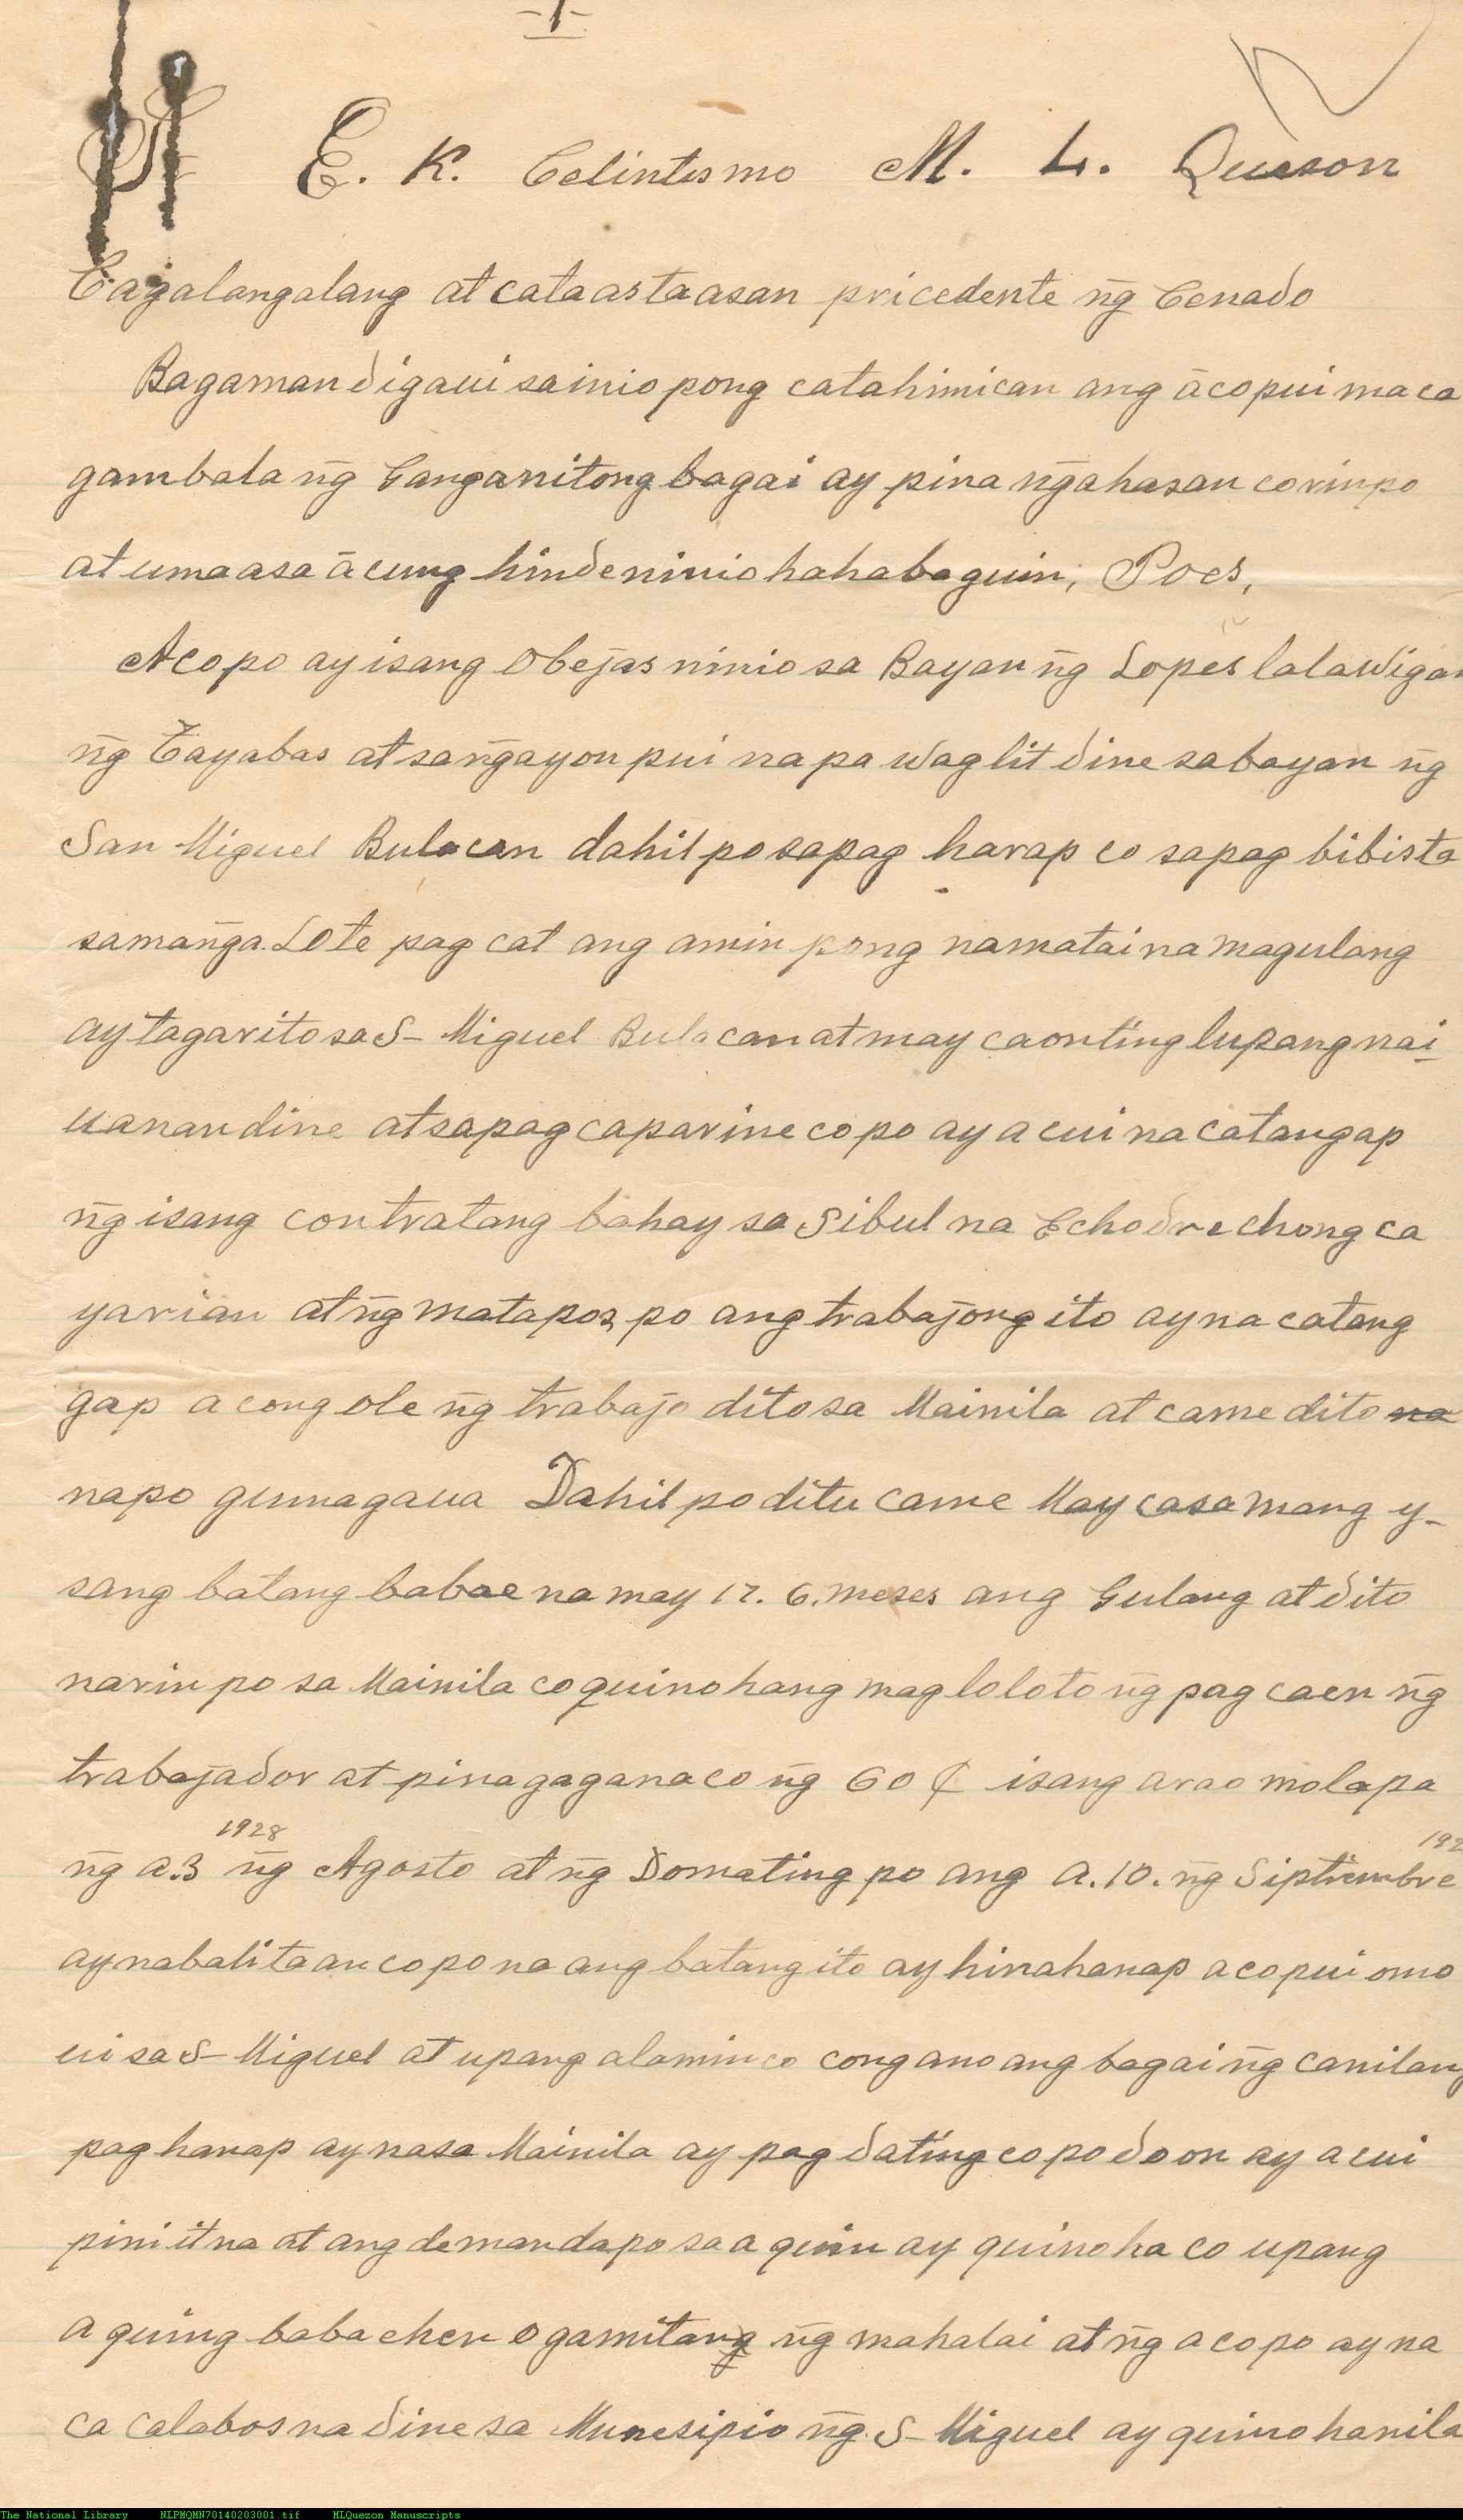 -1-
E. K. Celintismo M. L. Queson
Cagalangalang at cataastaasan pricedente n̄g Cenado
Bagaman digaui sainio pong catahimican ang āco pui maca
gambala n̄g Ganganitong bagai ay pina n̄gahasan co rin po
at umaasa ācung hinde ninio hahabaguin; Poes,
Aco po ay isang Obejas ninio sa Bayan n̄g Lopes lalawigan
n̄g Tayabas at san̄gayon pui napa waglit dine sa bayan n̄g
San Miguel Bulacan dahil po sapag harap co sapag bibista
saman̄ga Lote pag cat ang amin pong namatai na magulang
ay tagarito sa S- Miguel Bulacan at may caonting lupang nai
uanan dine at sapag caparine co po ay acui nacatangap
n̄g isang contratang bahay sa Sibul na Echodrechong ca
yarian at n̄g matapos po ang trabajong ito ay nacatang
gap acong ole n̄g trabajo dito sa Mainila at came dito na
napo gumagaua Dahil po ditu came May casamang y-
sang batang babae na may 17. 6. meses ang Gulang at dito
narin po sa Mainila co quinohang mag loloto n̄g pag caen n̄g
trabajador at pinagagana co n̄g 60 ₵ isang arao mola pa
1928 192
n̄g a.3 n̄g Agosto at n̄g Domating po ang a. 10. n̄g Siptiembre
ay nabalitaan co po na ang batang ito ay hinahanap aco pui omo
ui sa S- Miguel at upang alamin co cong ano ang bagai n̄g canilang
pag hanap ay nasa Mainila ay pag dating co po doon ay acui
piniit na at ang demanda po sa aquin ay quinoha co upang
aquing babachen o gamitang n̄g mahalai at n̄g aco po ay na
ca calabos na dine sa Munesipio n̄g S- Miguel ay quinoha nila
The National Library NLPMQMN70140203001.tif MLQuezon Manuscripts